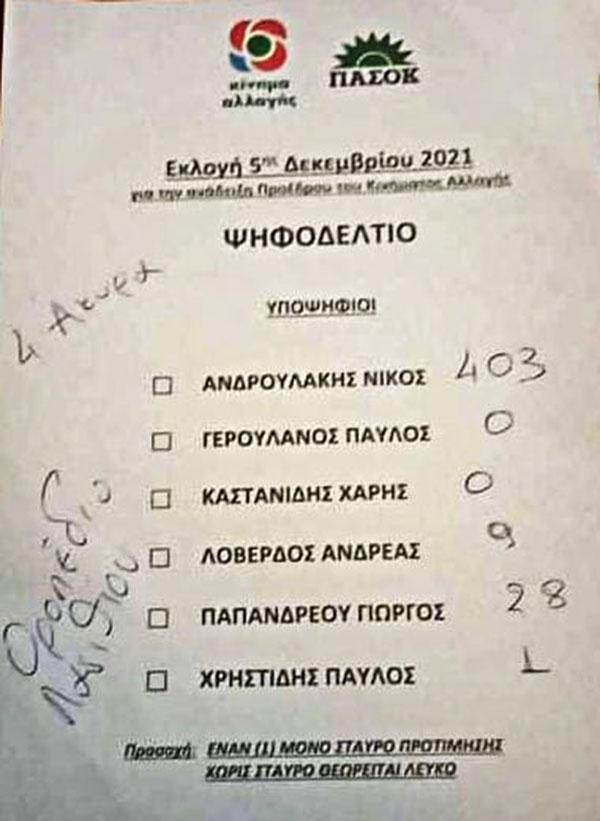 κίνημα
αλλαγής
ΠΑΣΟΚ
Εκλογή 5ης Δεκεμβρίου 2021
για την ανάδειξη Προέδρου του Κινήματος Αλλαγής
ΨΗΦΟΔΕΛΤΙΟ
4 Άκυρα
ΥΠΟΨΗΦΙΟΙ
ΑΝΔΡΟΥΛΑΚΗΣ ΝΙΚΟΣ 403
ΓΕΡΟΥΛΑΝΟΣ ΠΑΥΛΟΣ 0
ΚΑΣΤΑΝΙΔΗΣ ΧΑΡΗΣ 0
ΛΟΒΕΡΔΟΣ ΑΝΔΡΕΑΣ 9
ΠΑΠΑΝΔΡΕΟΥ ΓΙΩΡΓΟΣ 28
ΧΡΗΣΤΙΔΗΣ ΠΑΥΛΟΣ 1
Οροπέδιο
Λασιθίου
Προσοχή: ΕΝΑΝ (1) ΜΟΝΟ ΣΤΑΥΡΟ ΠΡΟΤΙΜΗΣΗΣ
ΧΩΡΙΣ ΣΤΑΥΡΟ ΘΕΩΡΕΙΤΑΙ ΛΕΥΚΟ